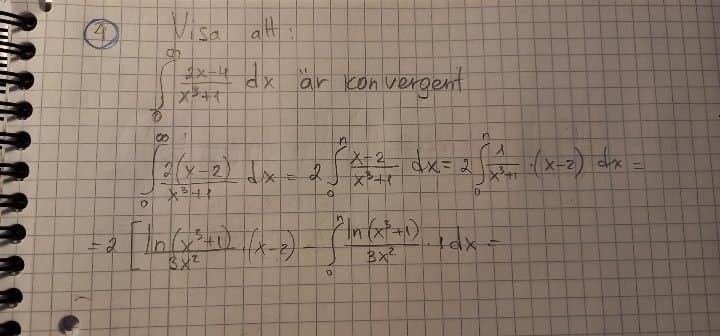 ④ Visa att:
∞∫0 2x-4/x³+1 dx är konvergent
∞∫0 2(x-2)/x³+1 dx = 2 n∫0 x-2/x³+1 dx = 2 n∫0 1/x³+1 · (x-2) dx =
= 2 [ ln(x³+1)/3x² · (x-2) - n∫0 ln(x³+1)/3x² · 1 dx =